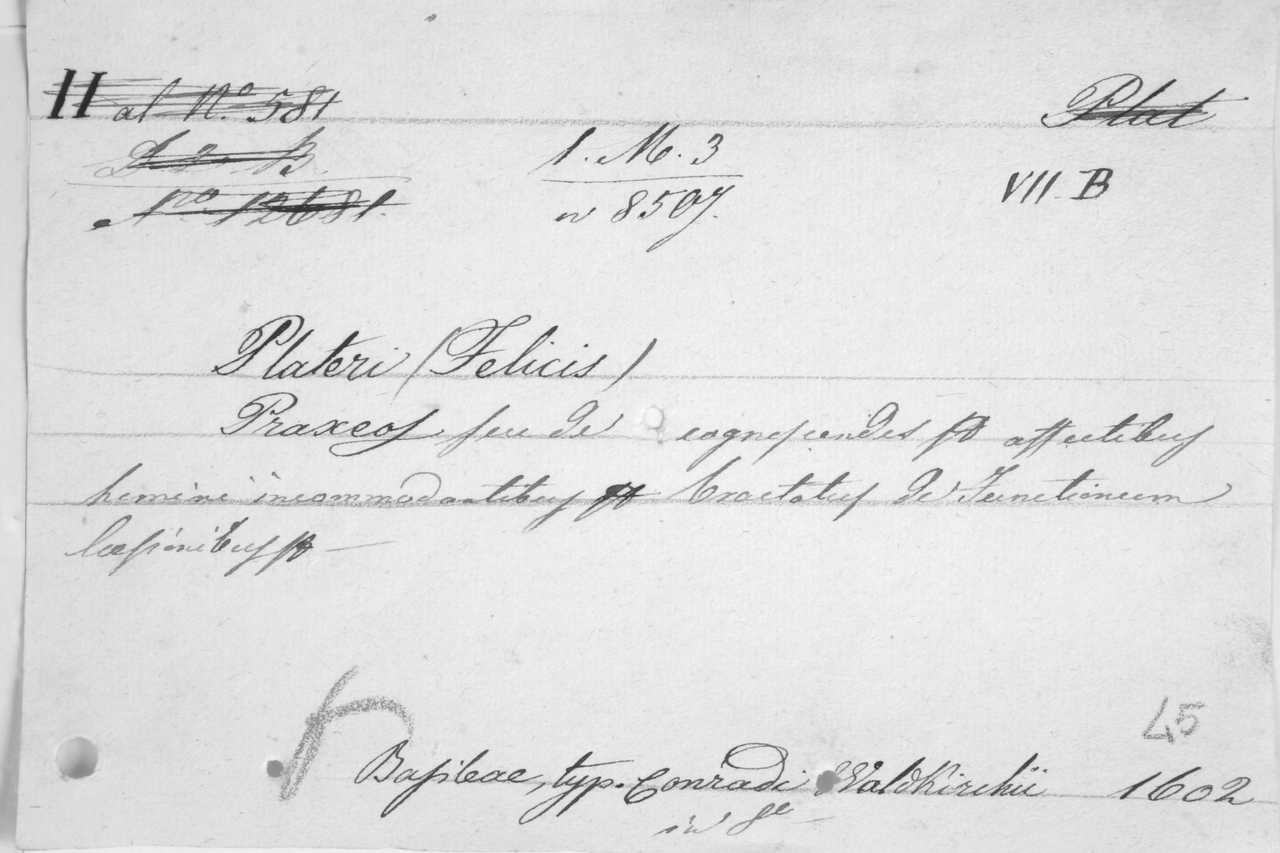 H al N.º 581
Plat
D 2 B
1. M. 3
VII. B
Nro 12681.
n 8507.
Plateri (Felicis)
Praxeos seu de cognoscendis affectibus
homini incommodantibus Tractatus de Functionum
læsionibus
45
Basileae, typ. Conradi Waldkirchii 1602
in 8º